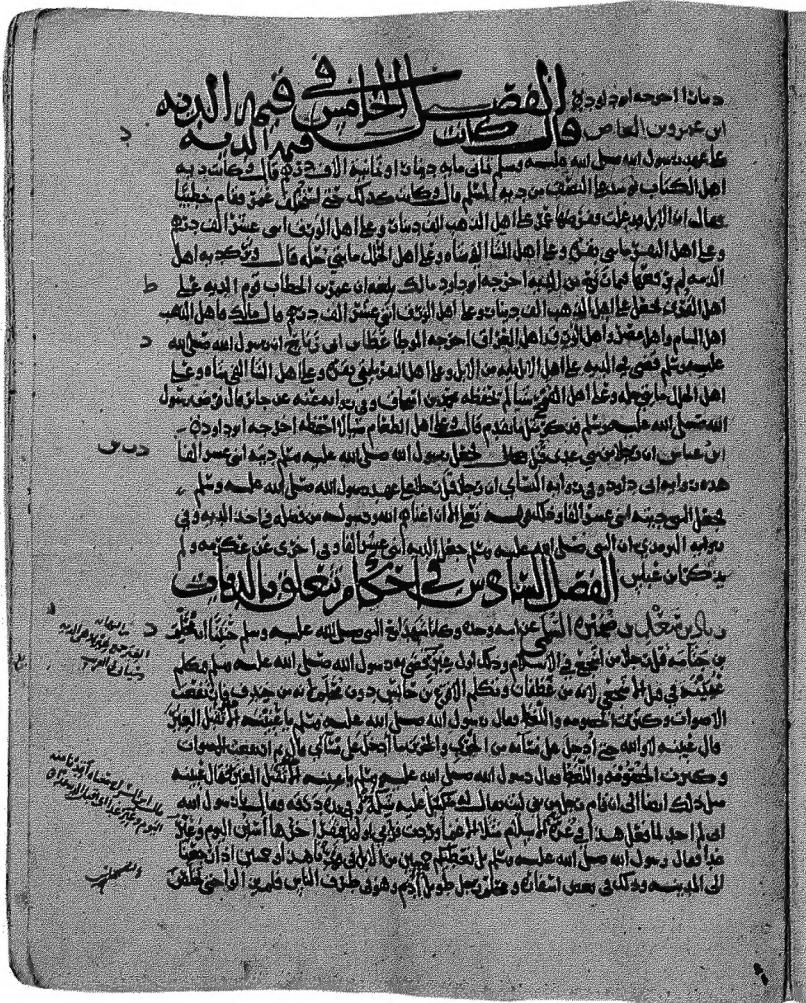 دينار اخرجه ابو داود الفصل الخامس في قيمه الديه
ابن عمرو بن العاص قال كانت قيمه الديه
على عهد رسول الله صلى الله عليه وسلم ثماني مايه دينار او ثمانية الاف درهم قال وكانت ديه
اهل الكتاب يوميذ النصف من ديه المسلم قال وكانت كذلك حتى استخلف عمر فقام خطيبا
فقال ان الابل قد غلت ففرضها عمر على اهل الذهب الف دينار وعلى اهل الورق اثني عشر الف درهم
وعلى اهل البقر مايتي بقره وعلى اهل الشا الفي شاه وعلى اهل الحلل مايتي حله قال وترك ديه اهل
الذمه لم يرفعها فيما رفع من الديه اخرجه ابو داود مالك بلغه ان عمر بن الخطاب قوم الديه على
اهل القرى فجعل على اهل الذهب الف دينار وعلى اهل الورق اثني عشر الف درهم قال مالك فاهل الذهب
اهل الشام واهل مصر واهل الورق اهل العراق اخرجه الموطا عطا بن ابي رباح ان رسول الله صلى الله
عليه وسلم قضى في الديه على اهل الابل مايه من الابل وعلى اهل البقر مايتي بقره وعلى اهل الشا الفي شاه وعلى
اهل الحلل مايتي حله وعلى اهل القمح شيا لم يحفظه محمد بن اسحاق وفي روايه عنه عن جابر قال فرض رسول
الله صلى الله عليه وسلم فذكر مثل ما تقدم قال وعلى اهل الطعام شيا لا احفظه اخرجه ابو داود
ابن عباس ان رجلا من بني عدي قتل فجعل رسول الله صلى الله عليه وسلم ديته اثني عشر الفا
هذه روايه ابي داود وفي روايه النساي ان رجلا قتل رجلا على عهد رسول الله صلى الله عليه وسلم
فجعل النبي ديته اثني عشر الفا وذكر قوله تعالى الا ان اغناهم الله ورسوله من فضله في اخذ الديه وفي
روايه الترمذي ان النبي صلى الله عليه وسلم جعل الديه اثني عشر الفا وفي اخرى عن عكرمه ولم
يذكر ابن عباس الفصل السادس في احكام تتعلق بالديات
زياد بن سعد بن ضميره السلمي عن ابيه وجده وكانا شهدا مع رسول الله صلى الله عليه وسلم حنينا ان محلم
بن جثامه قتل رجلا من اشجع في الاسلام وذلك اول غير قضى به رسول الله صلى الله عليه وسلم فتكلم
عيينه في قتل الاشجعي لانه من غطفان وتكلم الاقرع بن حابس دون محلم لانه من خندف فارتفعت
الاصوات وكثرت الخصومه واللغط فقال رسول الله صلى الله عليه وسلم يا عيينه الا تقبل الغير
قال عيينه لا والله حتى ادخل على نسايه من الحرب والحزن ما ادخل على نساي قال ثم ارتفعت الاصوات
وكثرت الخصومه واللغط فقال رسول الله صلى الله عليه وسلم يا عيينه الا تقبل الغير فقال عيينه
مثل ذلك ايضا الى ان قام رجل من بني ليث يقال له مكيتل عليه شكه وفي يده درقه فقال يا رسول الله
اني لم اجد لما فعل هذا في غره الاسلام مثلا الا غنما وردت فرمي اولها فنفر اخرها اسنن اليوم وغير
غدا فقال رسول الله صلى الله عليه وسلم بل نعطيكم خمسين من الابل في فورنا هذا وخمسين اذا رجعنا
الى المدينه وذلك في بعض اسفاره ومحلم رجل طويل ادم وهو في طرف الناس فلم يزالوا حتى تخلص